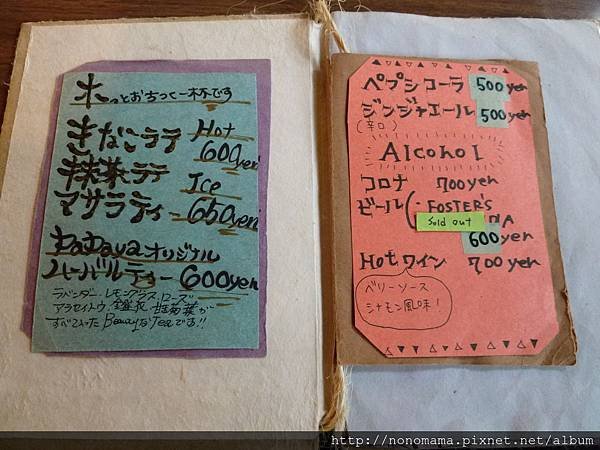 ホっとおちつく一杯です
きなこラテ Hot
600yen
抹茶ラテ Ice
マサラティ 650yen
PaPaya オリジナル
ハーバルティー 600yen
ラベンダー・レモングラス・ローズ
アラセイトウ・金盞花・姫菊葉が
すべて入った Beauty な Tea です!!
ペプシコーラ 500yen
ジンジャエール 500yen
(辛口)
Alcohol
コロナ 700yen
ビール( FOSTER'S
Sold out
600yen
Hot ワイン 700yen
ベリーソース
シナモン風味!
http://nonomama.pixnet.net/album